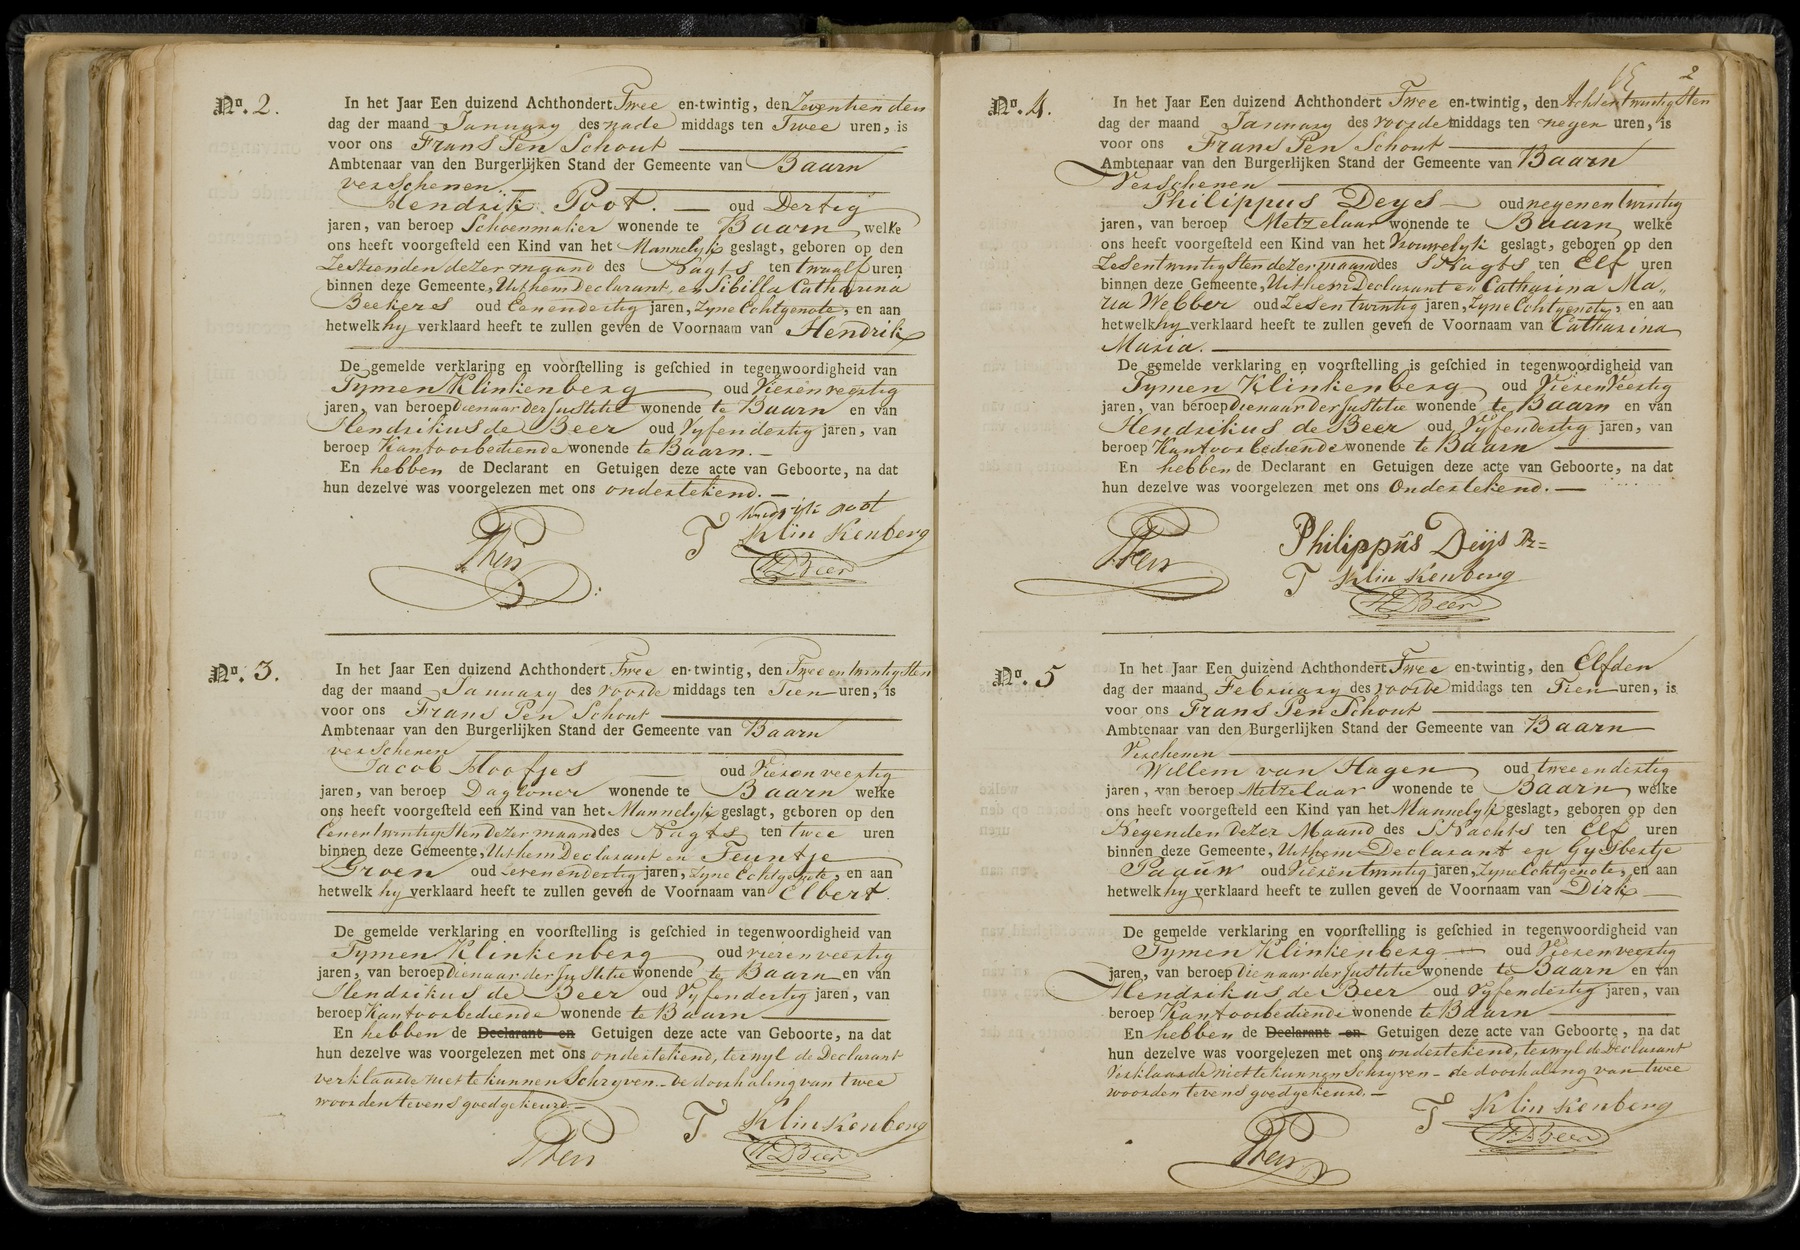 No. 2.
In het Jaar Een duizend Achthondert Twee en-twintig, den Zeventhienden
dag der maand January des nade middags ten Twee uren, is
voor ons Frans Pen Schout
Ambtenaar van den Burgerlijken Stand der Gemeente van Baarn
verschenen
Hendrik Poot. — oud Dertig
jaren, van beroep Schoenmaker wonende te Baarn welke
ons heeft voorgesteld een Kind van het Mannelyk geslagt, geboren op den
Zestienden dezer maand des Nagts ten twaalf uren
binnen deze Gemeente, Uit hem Declarant, en Sibilla Catharina
Beekers oud Eenendertig jaren, Zyne Echtgenote, en aan
hetwelk hy verklaard heeft te zullen geven de Voornaam van Hendrik
De gemelde verklaring en voorstelling is geschied in tegenwoordigheid van
Tymen Klinkenberg oud Vierenveertig
jaren, van beroep dienaar der Justitie wonende te Baarn en van
Hendrikus de Beer oud Vyfendertig jaren, van
beroep Kantoorbediende wonende te Baarn. —
En hebben de Declarant en Getuigen deze acte van Geboorte, na dat
hun dezelve was voorgelezen met ons ondertekend. —
poot
T Klinkenberg
Pen
HDBeer
No. 3.
In het Jaar Een duizend Achthondert Twee en-twintig, den Twee en twintigsten
dag der maand January des voorde middags ten Tien uren, is
voor ons Frans Pen Schout
Ambtenaar van den Burgerlijken Stand der Gemeente van Baarn
verschenen
Jacob Hoofjes — oud Vierenveertig
jaren, van beroep Dagloner wonende te Baarn welke
ons heeft voorgesteld een Kind van het Mannelyk geslagt, geboren op den
Eenentwintigsten dezer maand des Nagts ten twee uren
binnen deze Gemeente, Uit hem Declarant en Teuntje
Groen oud Zevenendertig jaren, Zyne Echtgenote, en aan
hetwelk hy verklaard heeft te zullen geven de Voornaam van Elbert.
De gemelde verklaring en voorstelling is geschied in tegenwoordigheid van
Tymen Klinkenberg oud vierenveertig
jaren, van beroep dienaar der Justitie wonende te Baarn en van
Hendrikus de Beer oud Vyfendertig jaren, van
beroep Kantoorbediende wonende te Baarn
En hebben de Declarant en Getuigen deze acte van Geboorte, na dat
hun dezelve was voorgelezen met ons ondertekend, terwyl de Declarant
verklaarde niet te kunnen Schryven — de doorhaling van twee
woorden tevens goedgekeurd. —
T Klinkenberg
Pen
HDBeer
2
No. 4.
In het Jaar Een duizend Achthondert Twee en-twintig, den Achtentwintigsten
dag der maand January des voorde middags ten negen uren, is
voor ons Frans Pen Schout
Ambtenaar van den Burgerlijken Stand der Gemeente van Baarn
Verschenen
Philippus Deys — oud negenentwintig
jaren, van beroep Metzelaar wonende te Baarn welke
ons heeft voorgesteld een Kind van het Vrouwelyk geslagt, geboren op den
Zesentwintigsten dezer maand des SNagts ten Elf uren
binnen deze Gemeente, Uit hem Declarant en Catharina Ma„
ria Webber oud Zesentwintig jaren, Zyne Echtgenote, en aan
hetwelk hy verklaard heeft te zullen geven de Voornaam van Catharina
Maria.
De gemelde verklaring en voorstelling is geschied in tegenwoordigheid van
Tymen Klinkenberg oud VierenVeertig
jaren, van beroep dienaar der Justitie wonende te Baarn en van
Hendrikus de Beer oud Vyfendertig jaren, van
beroep Kantoorbediende wonende te Baarn
En hebben de Declarant en Getuigen deze acte van Geboorte, na dat
hun dezelve was voorgelezen met ons Ondertekend. —
Philippus Deijs
Pen
T Klinkenberg
HDBeer
No. 5
In het Jaar Een duizend Achthondert Twee en-twintig, den Elfden
dag der maand February des voorde middags ten Tien uren, is
voor ons Frans Pen Schout
Ambtenaar van den Burgerlijken Stand der Gemeente van Baarn
Verschenen
Willem van Hagen oud tweeendertig
jaren, van beroep Metzelaar wonende te Baarn welke
ons heeft voorgesteld een Kind van het Mannelyk geslagt, geboren op den
Negenden dezer Maand des SNachts ten Elf uren
binnen deze Gemeente, Uit hem Declarant en Gysbertje
Paauw oud Vierentwintig jaren, Zyne Echtgenote, en aan
hetwelk hy verklaard heeft te zullen geven de Voornaam van Dirk
De gemelde verklaring en voorstelling is geschied in tegenwoordigheid van
Tymen Klinkenberg — oud Vierenveertig
jaren, van beroep dienaar der Justitie wonende te Baarn en van
Hendrikus de Beer oud Vyfendertig jaren, van
beroep Kantoorbediende wonende te Baarn
En hebben de Declarant en Getuigen deze acte van Geboorte, na dat
hun dezelve was voorgelezen met ons ondertekend, terwyl de Declarant
Verklaarde niet te kunnen Schryven — de doorhaling van twee
woorden tevens goedgekeurd. —
T Klinkenberg
Pen
HDBeer